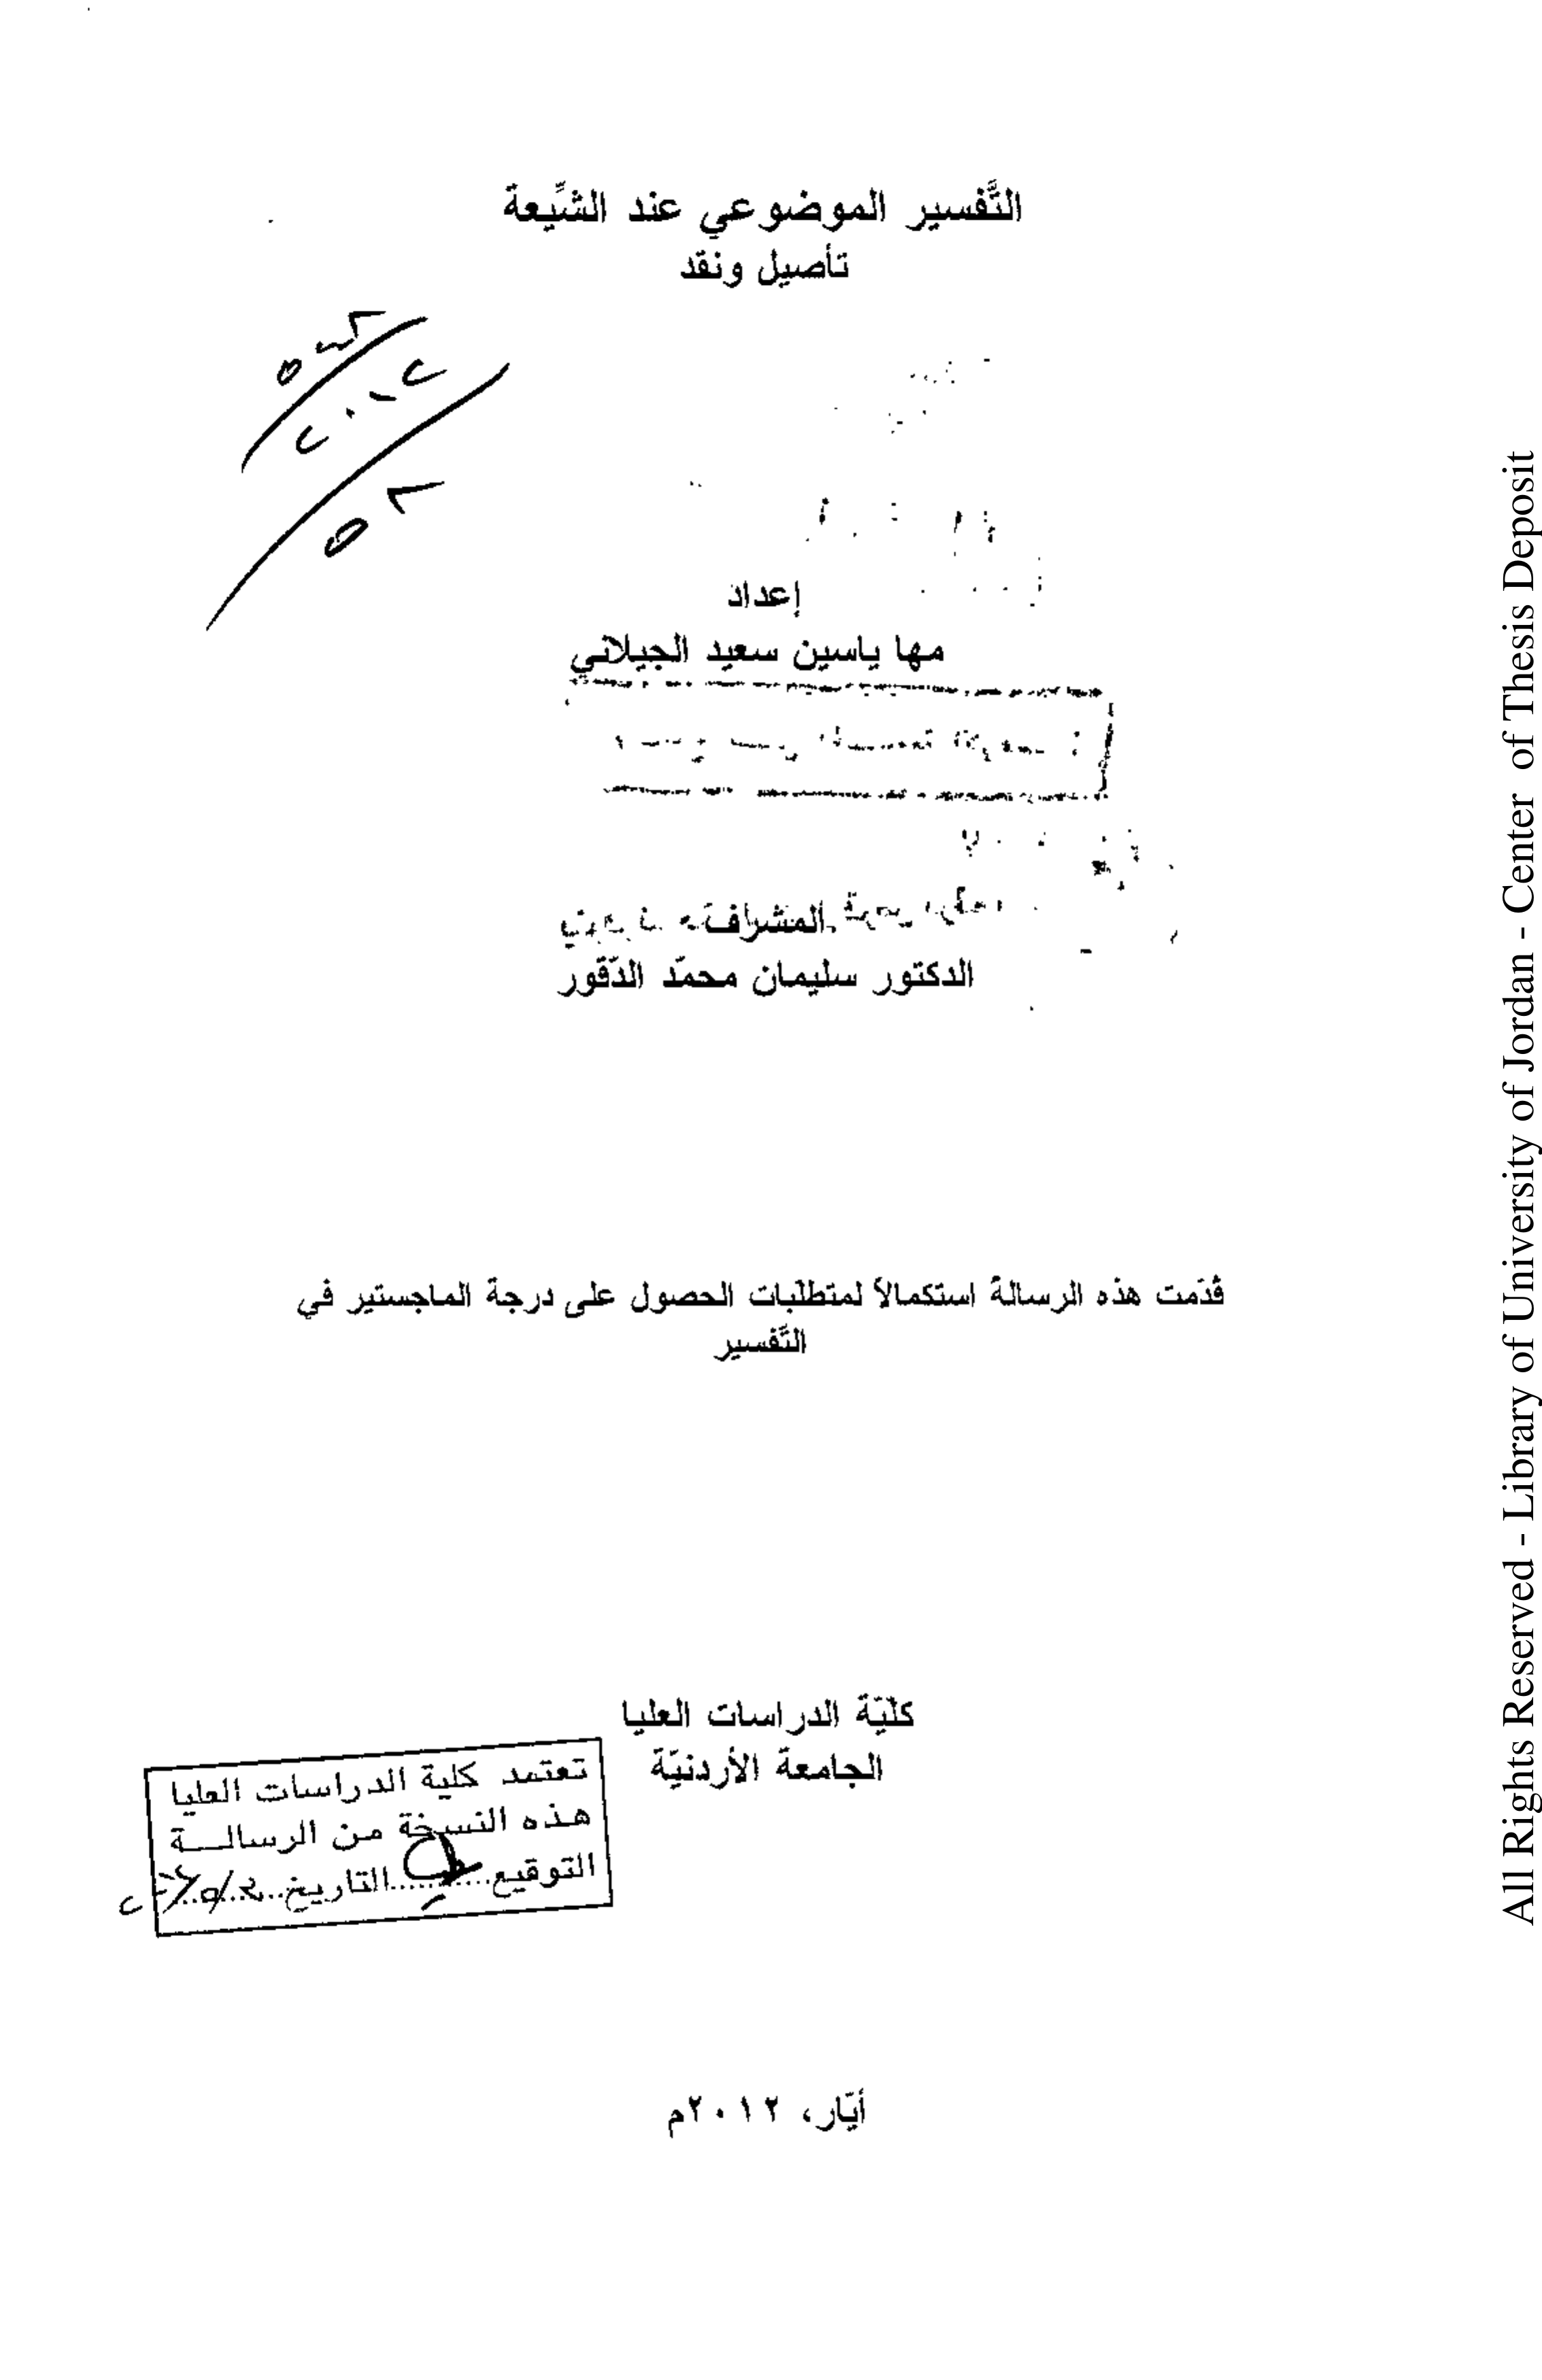 التَّفسير الموضوعي عند الشِّيعة
تأصيل ونقد
إعداد
مها ياسين سعيد الجيلاني
المشرف
الدكتور سليمان محمّد الدّقور
قُدّمت هذه الرسالة استكمالاً لمتطلّبات الحصول على درجة الماجستير في
التَّفسير
كلّيّة الدراسات العليا
الجامعة الأردنيّة
تعتمد كلية الدراسات العليا
هذه النسخة من الرسالــة
التوقيع............التاريخ............
أيّار، ٢٠١٢م
All Rights Reserved - Library of University of Jordan - Center of Thesis Deposit